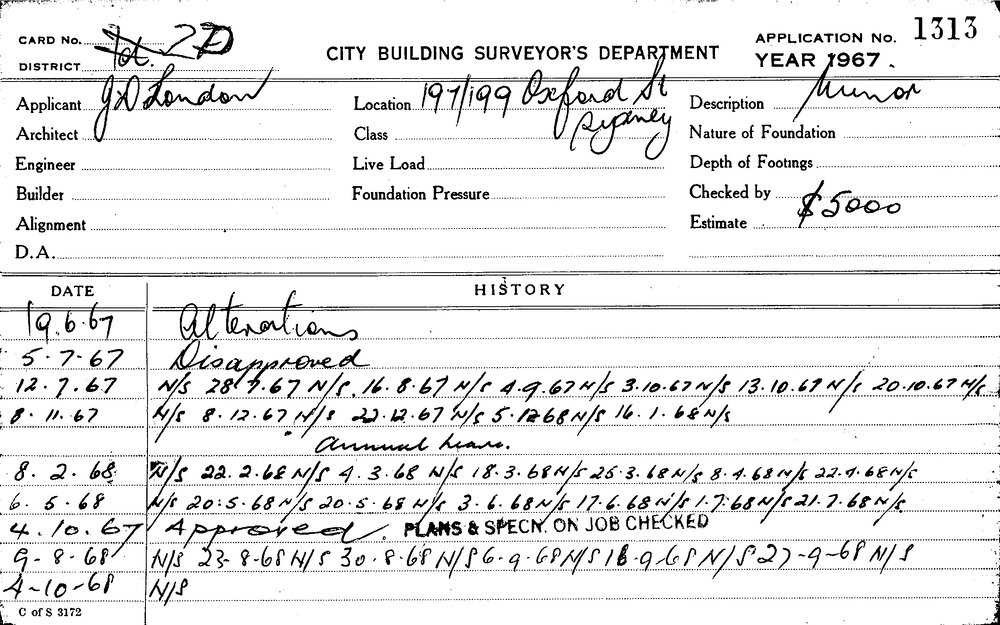 CARD No. 27
DISTRICT
CITY BUILDING SURVEYOR'S DEPARTMENT
APPLICATION No. 1313
YEAR 1967.
Applicant J D London
Location 197/199 Oxford St
Sydney
Description Minor
Architect
Class
Nature of Foundation
Engineer
Live Load
Depth of Footings
Builder
Foundation Pressure
Checked by
Alignment
Estimate $5000
D.A.
DATE HISTORY
19.6.67 Alterations
5-7-67 Disapproved
12.7.67 N/S 28.7.67 N/S. 16.8.67 N/S 4.9.67 N/S 3.10.67 N/S 13.10.67 N/S 20.10.67 N/S.
8.11.67 N/S 8.12.67 N/S 22.12.67 N/S 5.1.68 N/S 16.1.68 N/S
Annual leave.
8.2.68. N/S 22.2.68 N/S 4.3.68 N/S 18.3.68 N/S 25.3.68 N/S 8.4.68 N/S 22.4.68 N/S
6.5.68 N/S 20.5.68 N/S 20.5.68 N/S 3.6.68 N/S 17.6.68 N/S 1.7.68 N/S 21.7.68 N/S.
4.10.67 Approved. PLANS & SPECN. ON JOB CHECKED
9-8-68 N/S 23-8-68 N/S 30.8.68 N/S 6.9.68 N/S 16-9-68 N/S 27-9-68 N/S
4-10-68 N/S
C of S 3172